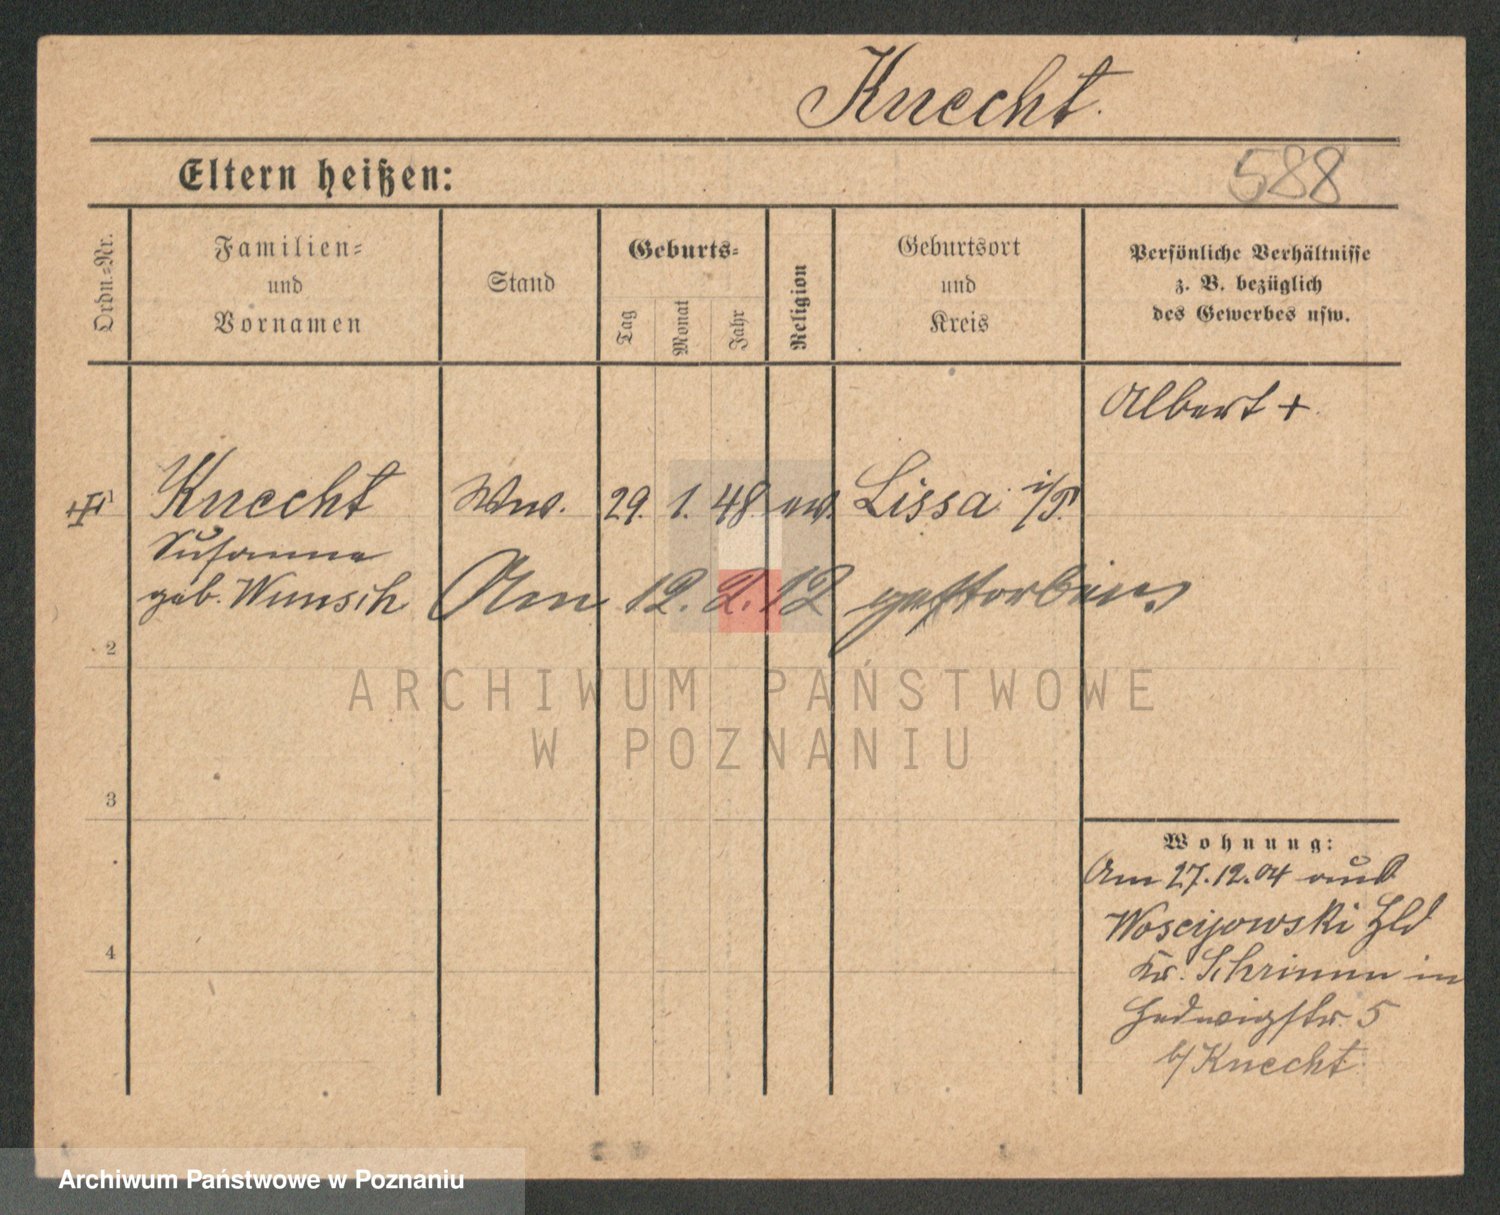 Knecht.
Eltern heißen:
588
Ordn.=Nr.
Familien=
und
Vornamen
Stand
Geburts=
Tag
Monat
Jahr
Religion
Geburtsort
und
Kreis
Persönliche Verhältnisse
z. B. bezüglich
des Gewerbes usw.
Albert +
1
Knecht Ww. 29. 1. 48. ev. Lissa i/P.
Susanna
geb. Wunsch
Am 12. 2. 12 gestorben
2
ARCHIWUM PAŃSTWOWE
W POZNANIU
3
4
Wohnung:
Am 27.12.04 aus
Woscijowski Hld
Kr. Schrimm in
Hedwigstr. 5
b/ Knecht
Archiwum Państwowe w Poznaniu